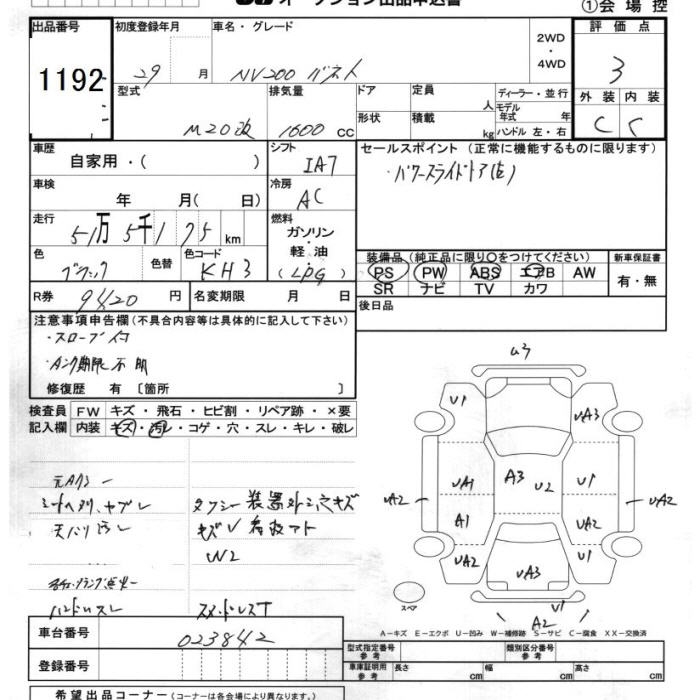 オークション出品申込書
①会場控
出品番号 初度登録年月 車名・グレード 2WD・4WD 評価点
1192 29 月 NV200 バネット 3
型式 排気量 ドア 定員 人 ディーラー・並行 外装 内装
M20改 1600 CC 形状 積載 kg モデル年式 年 ハンドル 左・右 C C
車歴 自家用・( ) シフト IA7 セールスポイント (正常に機能するものに限ります)
・パワースライドドア(左)
車検 年 月( 日) 冷房 AC
走行 51万 5千 175 km 燃料 ガソリン・軽油 (LPG)
色 ブラック 色替 色コード KH3
装備品 (純正品に限り○をつけてください) 新車保証書
PS PW ABS エアB AW 有・無
SR ナビ TV カワ
R券 9420 円 名変期限 月 日 後日品
注意事項申告欄 (不具合内容等は具体的に記入して下さい)
・スロープ付
・タンク期限不明
修復歴 有 〔箇所 〕
検査員記入欄 FW キズ・飛石・ヒビ割・リペア跡・×要
内装 キズ・汚レ・コゲ・穴・スレ・キレ・破レ
元タクシー
シートヘタリ、ヤブレ タクシー装置外シ穴キズ
天バリ汚レ キズV 看板アト
W2
ハンドルスレ
U3
U1 UA3
UA1 A3 U2 U1
UA2 UA2
A1 UA2
UA2 UA3 U1
スペア U1
A2
A-キズ E-エクボ U-凹み W-補修跡 S-サビ C-腐食 XX-交換済
車台番号 023842
登録番号
型式指定番号 参考 類別区分番号 参考
車庫証明用 参考 長さ cm 幅 cm 高さ cm
希望出品コーナー (コーナーは各会場により異なります。)